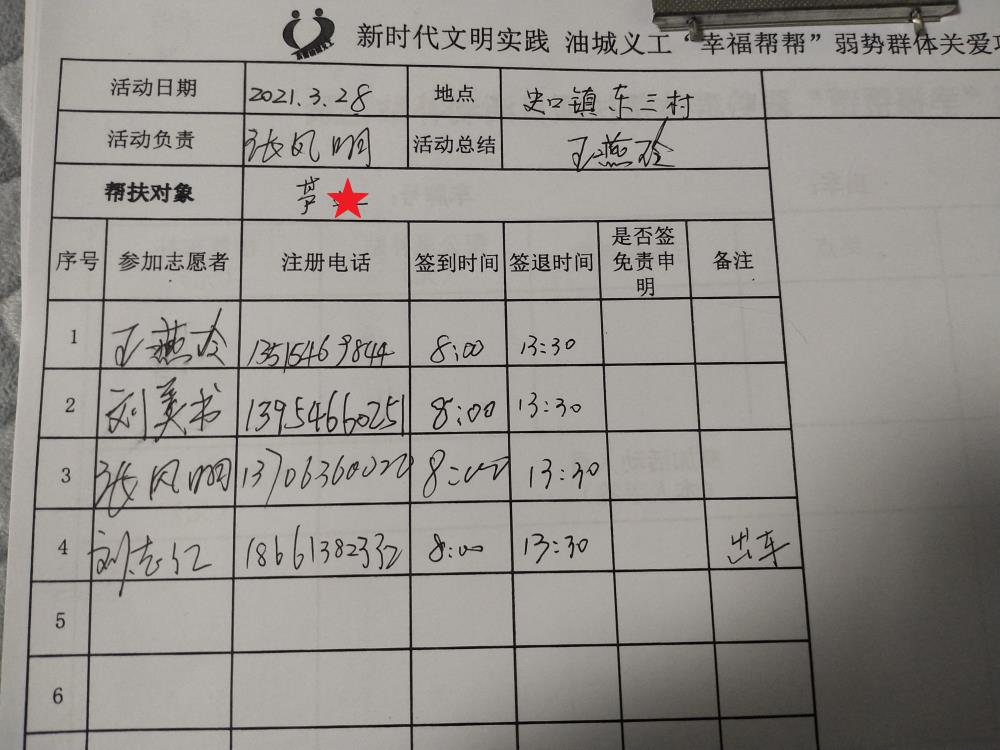 新时代文明实践 油城义工“幸福帮帮”弱势群体关爱
活动日期 2021.3.28 地点 史口镇东三村
活动负责 张风明 活动总结 王燕玲
帮扶对象
序号 参加志愿者 注册电话 签到时间 签退时间 是否签免责申明 备注
1 王燕玲 13515469844 8:00 13:30
2 刘美书 13954660251 8:00 13:30
3 张风明 8:00 13:30
4 刘志仁 18661382332 8:00 13:30 出车
5
6